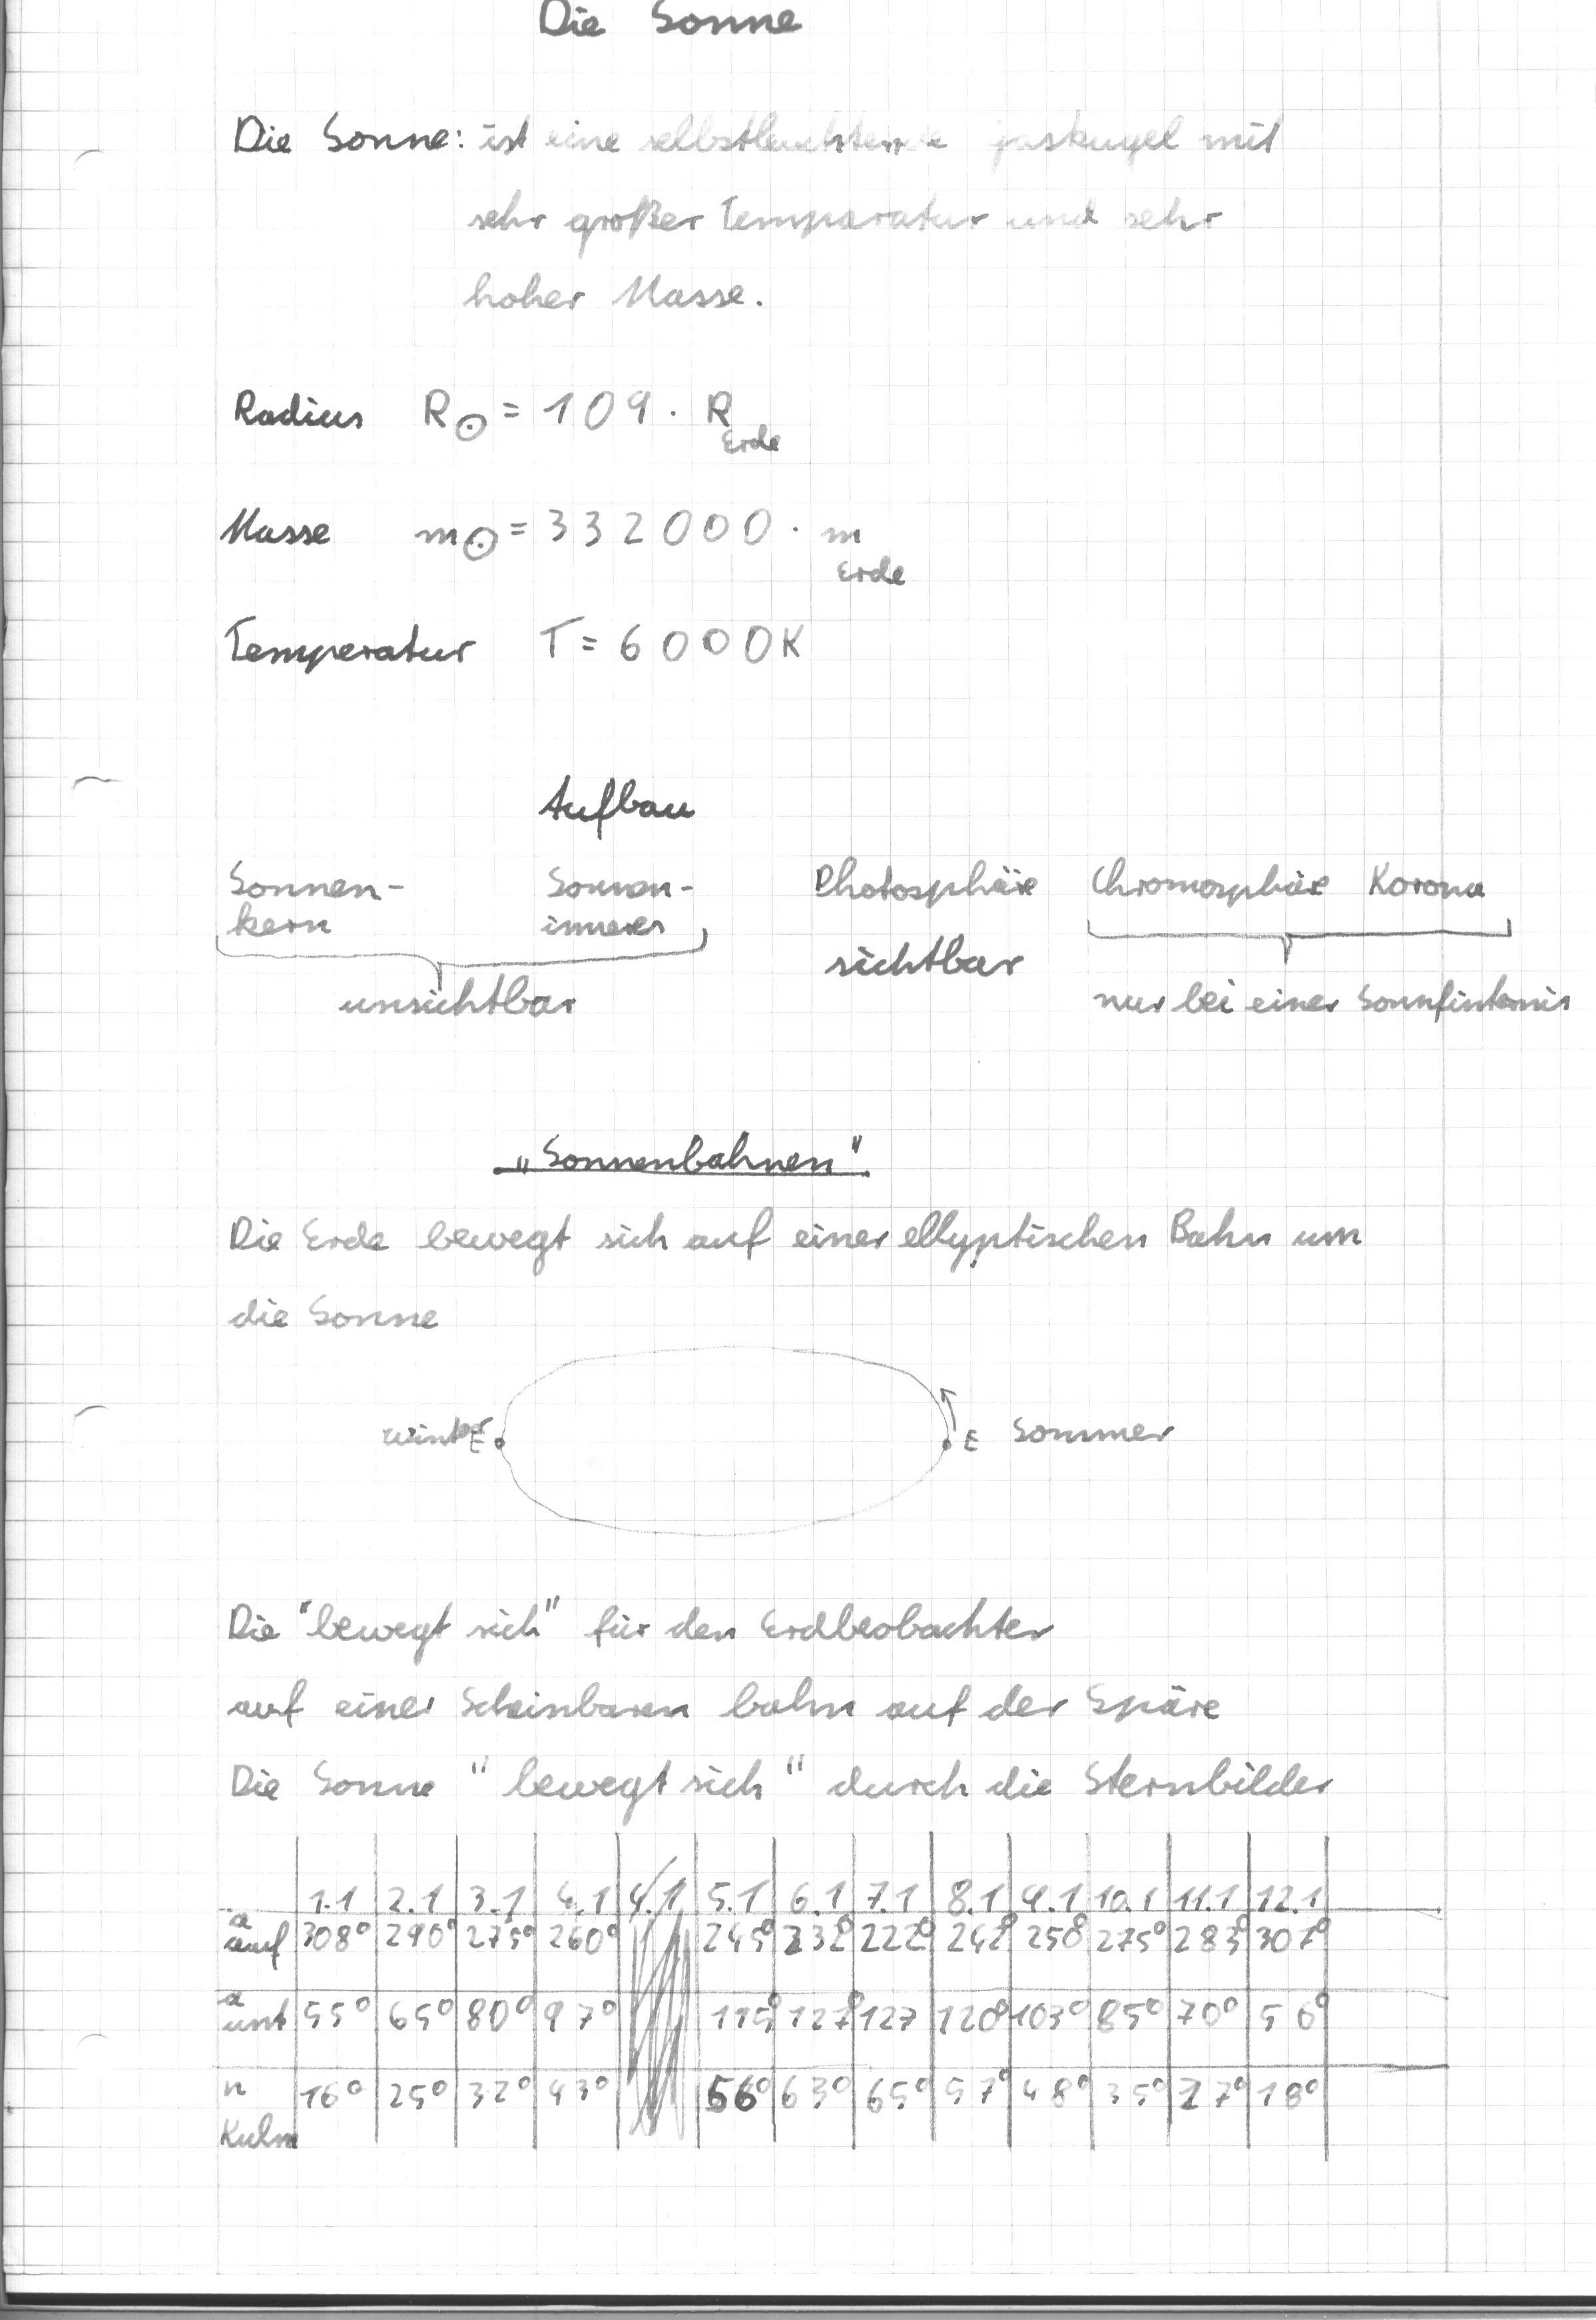 Die Sonne
Die Sonne: ist eine selbstleuchtende gaskugel mit
sehr großer Temparatur und sehr
hoher Masse.
Radius R☉ = 109 · R Erde
Masse m☉ = 332000 · m Erde
Temperatur T = 6000K
Aufbau
Sonnen- Sonnen- Photosphäre Chromosphäre Korona
kern inneres
sichtbar
unsichtbar nur bei einer Sonnfinternis
„Sonnenbahnen"
Die Erde bewegt sich auf einer ellyptischen Bahn um
die Sonne
Winter E E Sommer
Die "bewegt sich" für den Erdbeobachter
auf einer Scheinbaren bahn auf der Späre
Die Sonne "bewegt sich" durch die Sternbilder
1.1 2.1 3.1 4.1 4.1 5.1 6.1 7.1 8.1 9.1 10.1 11.1 12.1
a auf 308° 290° 275° 260° 245° 232° 222° 242° 258° 275° 283° 307°
a unt 55° 65° 80° 97° 115° 127° 127 120° 103° 85° 70° 56°
n Kulm 16° 25° 32° 43° 56° 63° 65° 57° 48° 35° 27° 18°